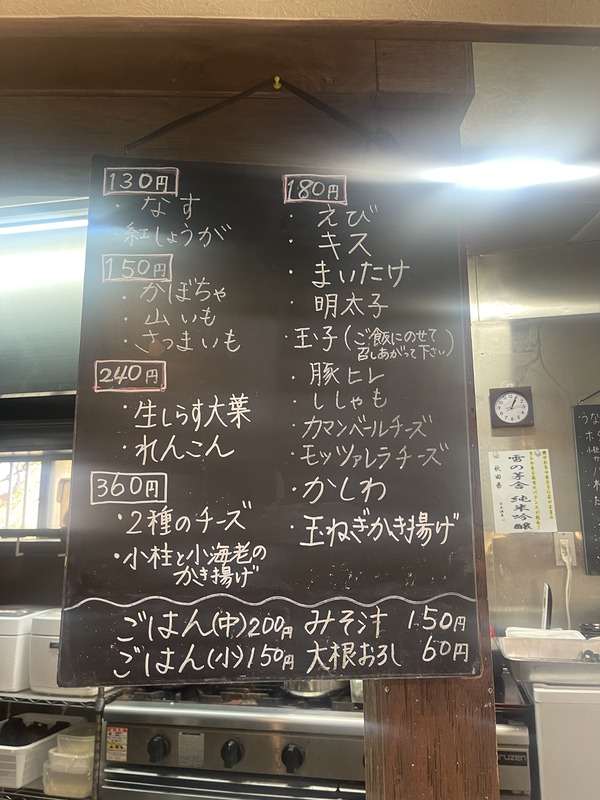 130円
・なす
・紅しょうが
150円
・かぼちゃ
・山いも
・さつまいも
240円
・生しらす大葉
・れんこん
360円
・2種のチーズ
・小柱と小海老の
かき揚げ
180円
・えび
・キス
・まいたけ
・明太子
・玉子(ご飯にのせて
召しあがって下さい)
・豚ヒレ
・ししゃも
・カマンベールチーズ
・モッツァレラチーズ
・かしわ
・玉ねぎかき揚げ
ごはん(中)200円 みそ汁 150円
ごはん(小)150円 大根おろし 60円
雪の茅舎 純米吟醸
秋田県